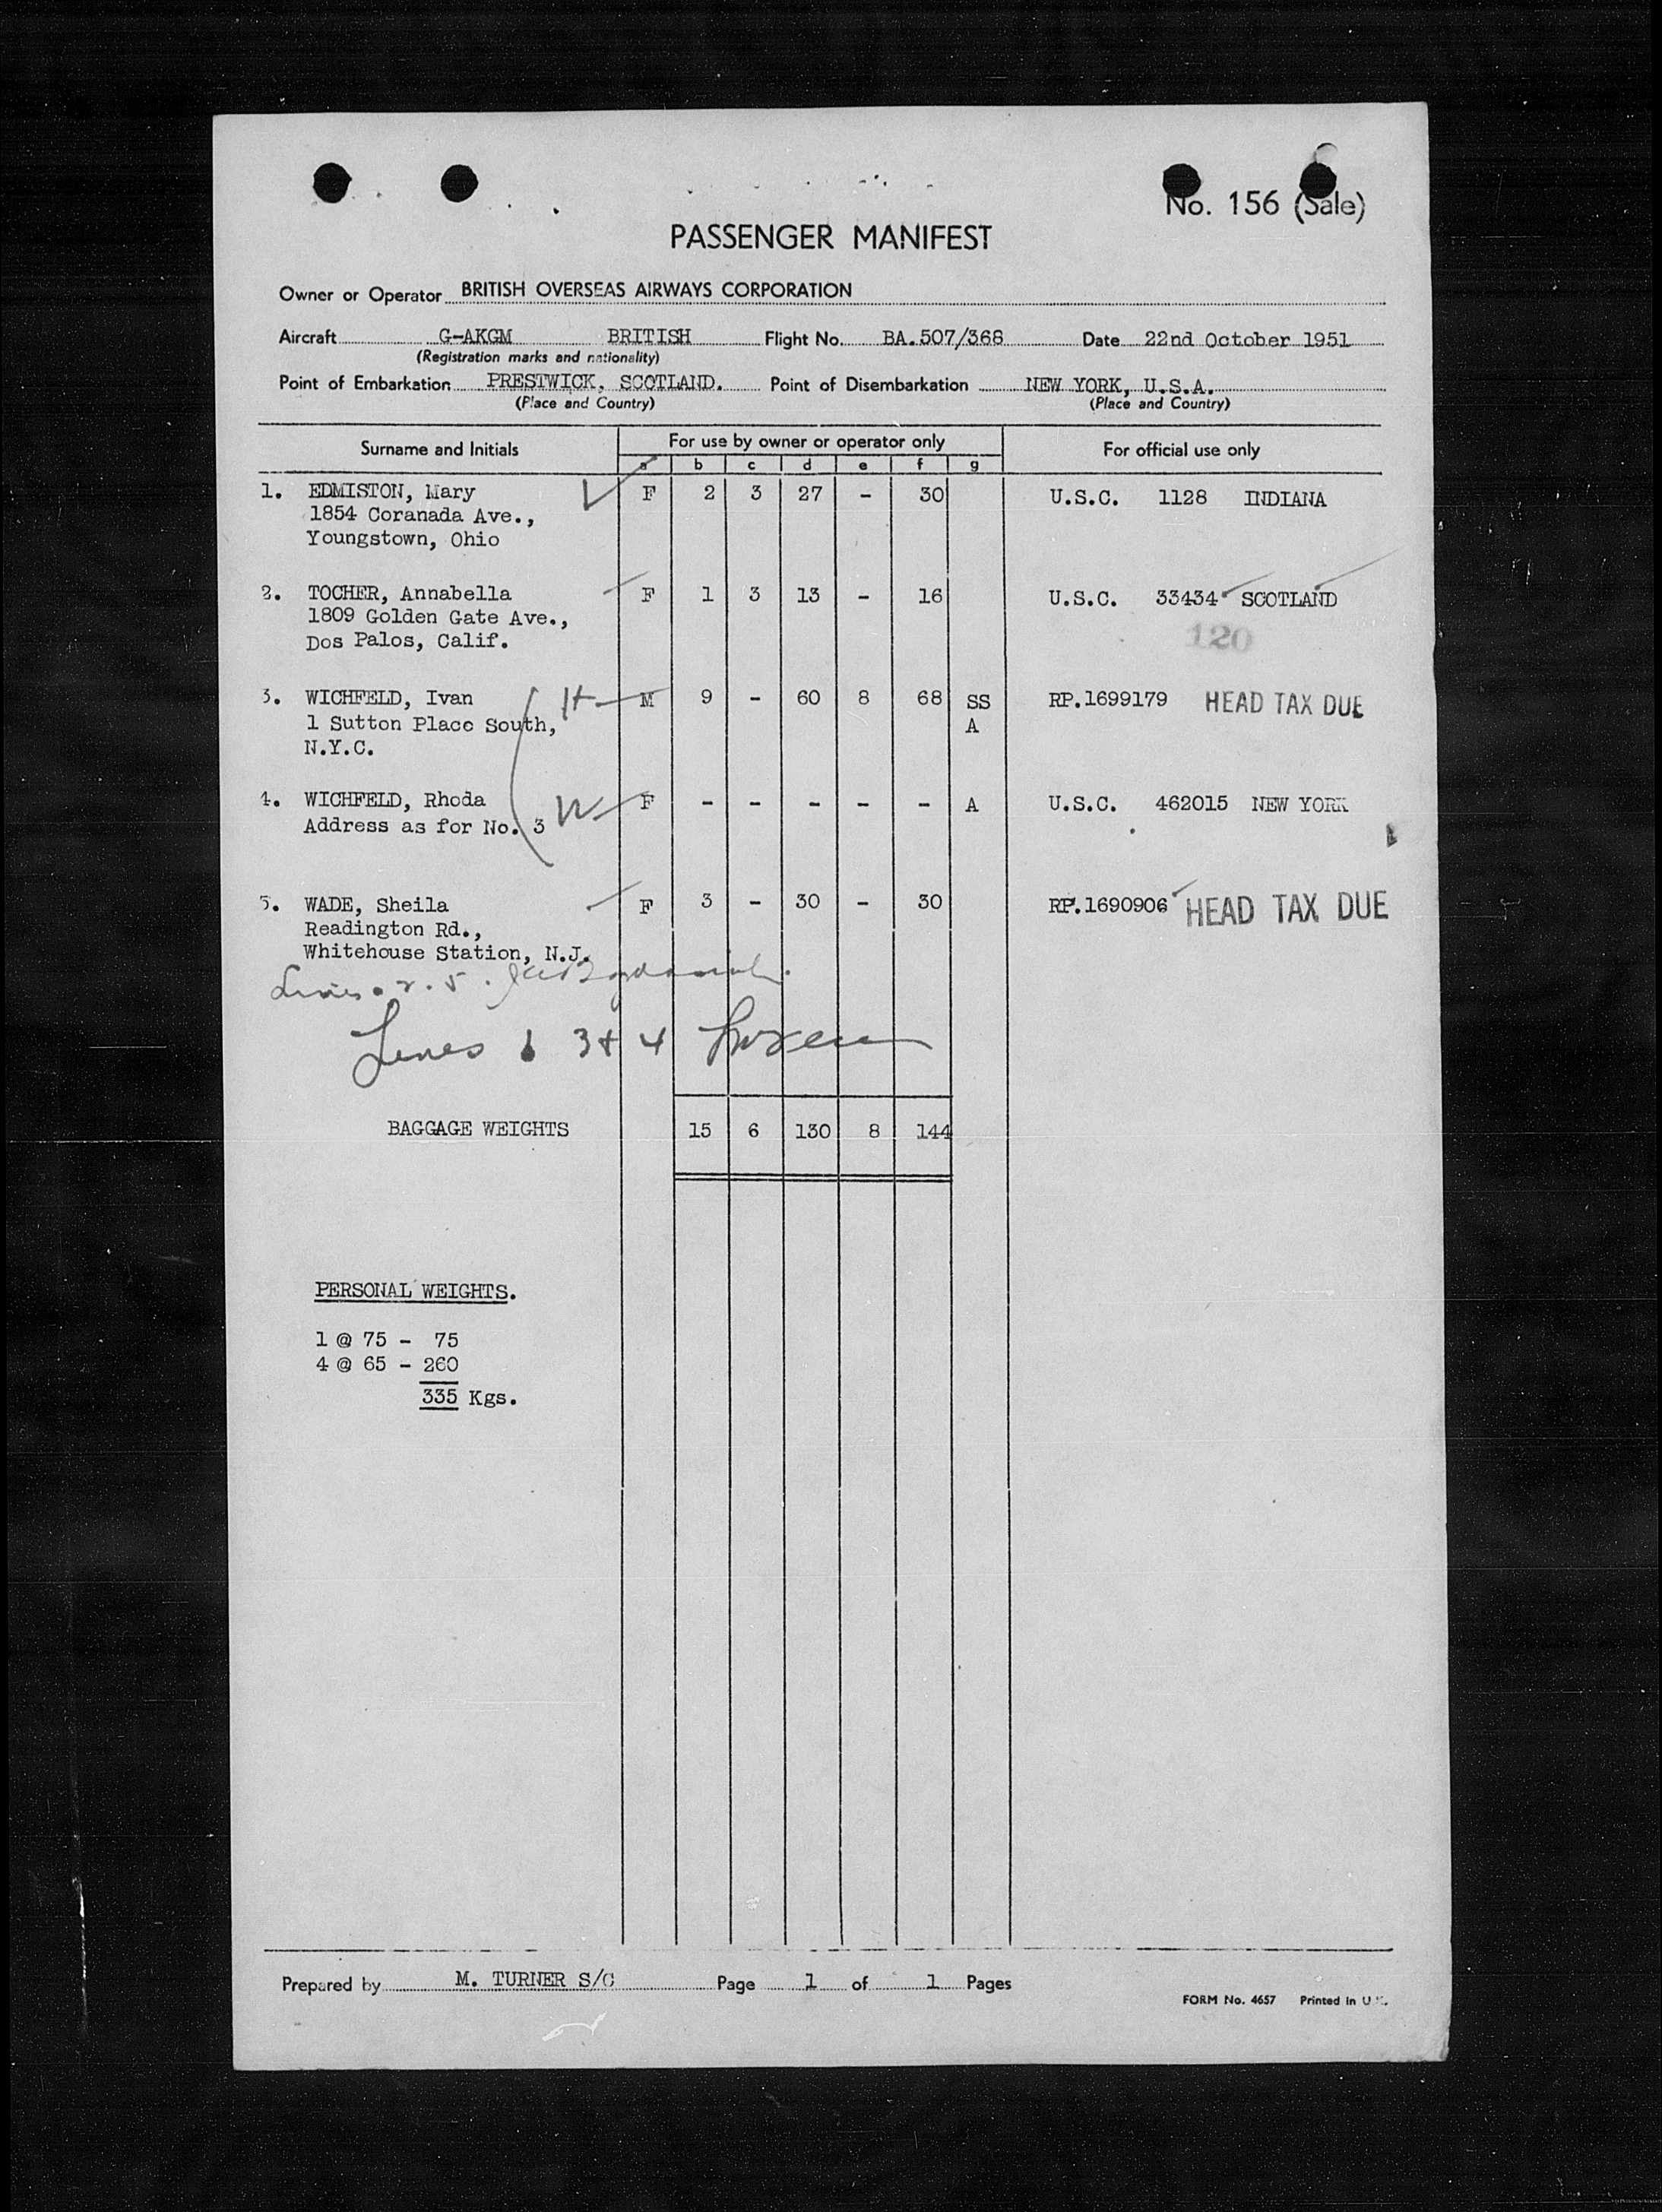 No. 156 (Sale)
PASSENGER MANIFEST
Owner or Operator BRITISH OVERSEAS AIRWAYS CORPORATION
Aircraft G-AKGM BRITISH Flight No. BA.507/368 Date 22nd October 1951
(Registration marks and nationality)
Point of Embarkation PRESTWICK, SCOTLAND. Point of Disembarkation NEW YORK, U.S.A.
(Place and Country) (Place and Country)
Surname and Initials For use by owner or operator only For official use only
a b c d e f g
1. EDMISTON, Mary F 2 3 27 - 30 U.S.C. 1128 INDIANA
1854 Coranada Ave.,
Youngstown, Ohio
2. TOCHER, Annabella F 1 3 13 - 16 U.S.C. 33434 SCOTLAND
1809 Golden Gate Ave.,
120
Dos Palos, Calif.
3. WICHFELD, Ivan H M 9 - 60 8 68 SS RP.1699179 HEAD TAX DUE
1 Sutton Place South, A
N.Y.C.
4. WICHFELD, Rhoda W F - - - - - A U.S.C. 462015 NEW YORK
Address as for No. 3
5. WADE, Sheila F 3 - 30 - 30 RP.1690906 HEAD TAX DUE
Readington Rd.,
Whitehouse Station, N.J.
Lines 2. 5.
Lines 1 3+4
BAGGAGE WEIGHTS 15 6 130 8 144
PERSONAL WEIGHTS.
1 @ 75 - 75
4 @ 65 - 260
335 Kgs.
Prepared by M. TURNER S/C Page 1 of 1 Pages
FORM No. 4657 Printed in U.K.